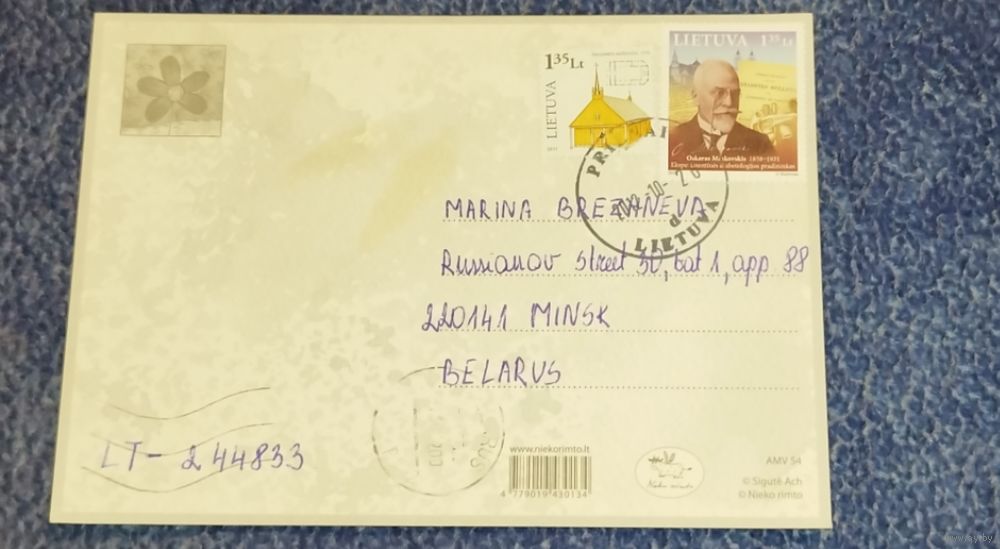 LIETUVA 1 35 Lt
1 35 Lt
LIETUVA
2011
Oskaras Minkovskis 1858-1931
LIETUVA
MARINA BREZANEVA
Russianov Street 50, bat 1, app 88
220141 MINSK
BELARUS
LT-244833
www.niekorimto.lt
4 779019 430134
Nieko rimto
AMV 54
© Sigutė Ach
© Nieko rimto
www.ay.by